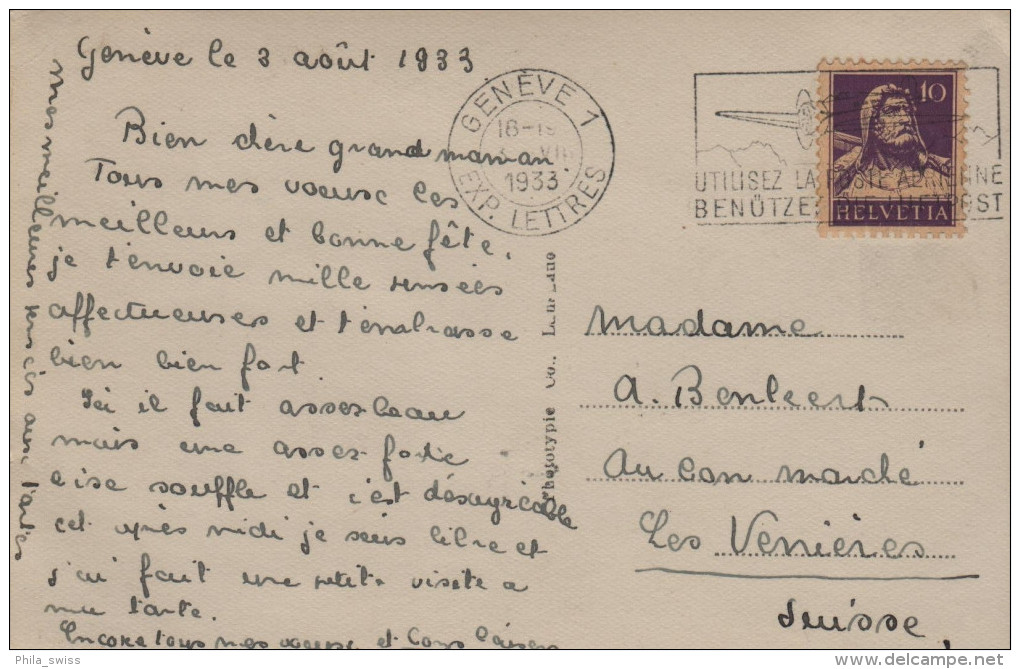 Genève le 3 août 1933.
Bien chère grandmaman
Tous mes voeux les
meilleurs et bonne fête,
je t'envoie mille pensées
affectueuses et t'embrasse
bien bien fort.
Ici il fait assez beau
mais une assez forte
bise souffle et c'est désagréable
cet après midi je suis libre et
j'ai fait une petite visite a
ma tante.
Encore tous mes voeux et bons baisers
mes meilleures pensées aux tantes
GENÈVE 1
18-19
VIII
1933
EXP. LETTRES
UTILISEZ LA POSTE AÉRIENNE
BENÜTZET LUFTPOST
10
HELVETIA
Phototypie Co., Lausanne
Madame
A.
Au bon marché
Les Verrières
Suisse,
Phila_swiss